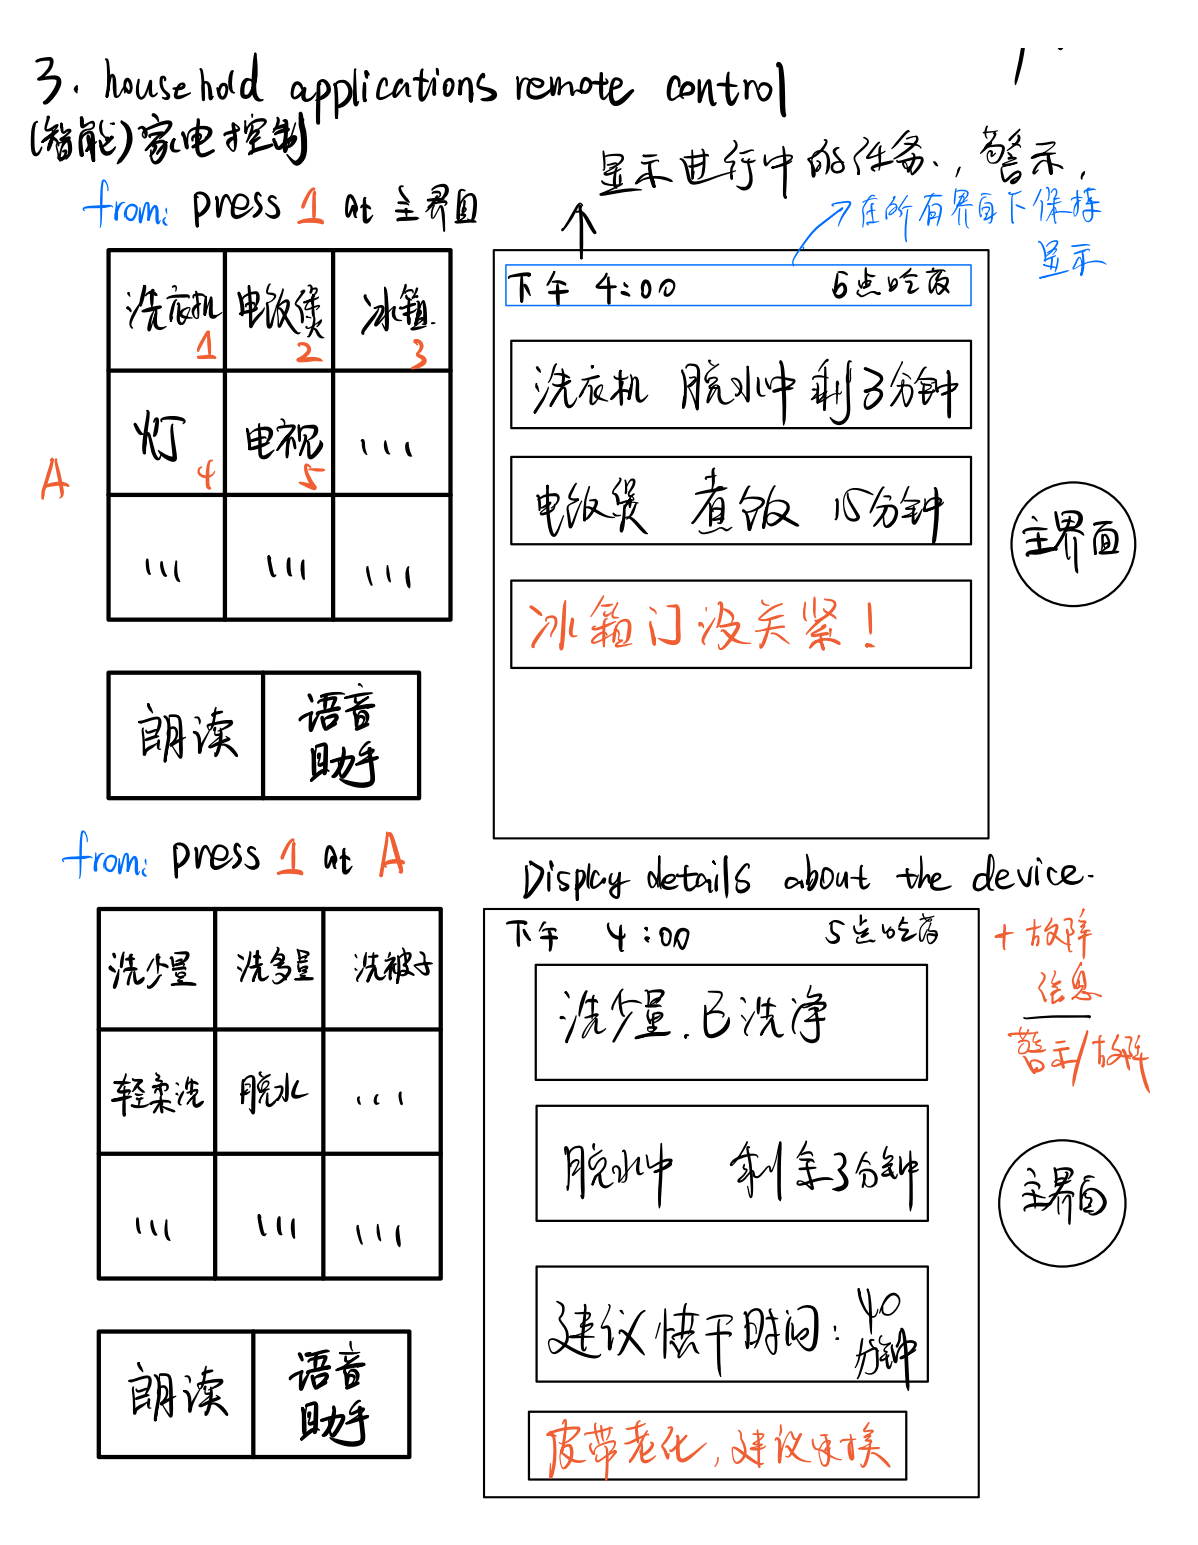 3. household applications remote control
(智能)家电控制
from: press 1 at 主界面
显示进行中的任务、警示,
在所有界面下保持
显示
洗衣机 1 电饭煲 2 冰箱 3
灯 4 电视 5 ...
... ... ...
A
朗读 语音
助手
下午 4:00 5点吃药
洗衣机 脱水中 剩3分钟
电饭煲 煮饭 15分钟
冰箱门没关紧!
主界面
from: press 1 at A
洗少量 洗多量 洗被子
轻柔洗 脱水 ...
... ... ...
朗读 语音
助手
Display details about the device.
下午 4:00 5点吃药
洗少量.已洗净
脱水中 剩余3分钟
建议烘干时间: 40
分钟
皮带老化,建议更换
+故障
信息
警示/故障
主界面